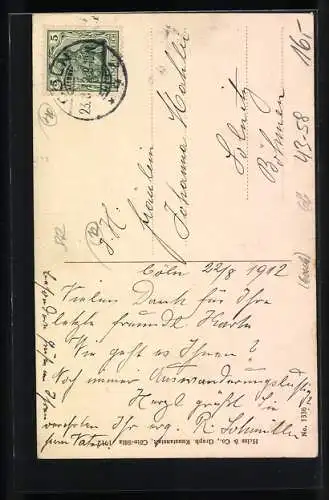 CÖLN
5
5
I. H.
Fräulein
Johanna Mahler
Böhmen
16,-
43-58
Cöln 22/8 1912
Vielen Dank für Ihre
letzte freundl. Karte
Wie geht es Ihnen?
Noch immer Auswanderungslustig?
Herzl. grüßt Sie
Ihr erg. R. Schmiller
Heiss & Co., Graph. Kunstanstalt, Cöln
No. 1336